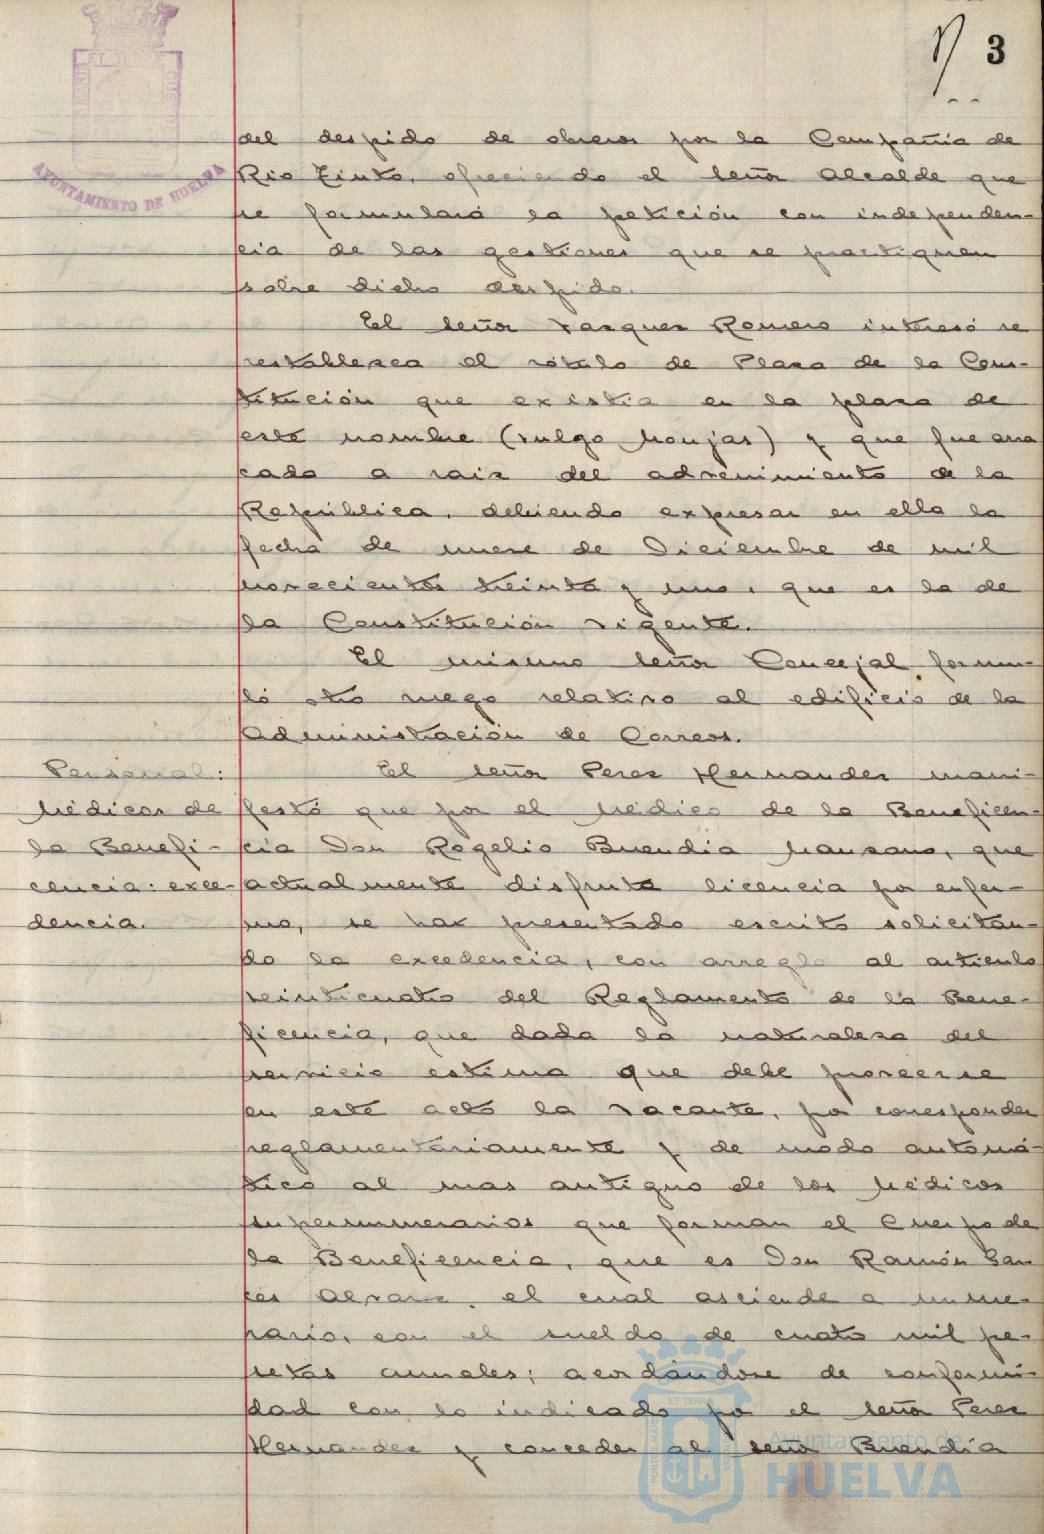 3
AYUNTAMIENTO DE HUELVA
del despido de obreros por la Compañia de
Rio Tinto, ofreciendo el señor Alcalde que
se formulará la petición con independen-
cia de las gestiones que se practiquen
sobre dicho despido.
El señor Vazquez Romero interesó se
restablezca el rótulo de Plaza de la Cons-
titución que existia en la plaza de
este nombre (vulgo Monjas) y que fue arran
cado a raiz del advenimiento de la
República, debiendo expresar en ella la
fecha de nueve de Diciembre de mil
novecientos treinta y uno, que es la de
la Constitución vigente.
El mismo señor Concejal formu-
ló otro ruego relativo al edificio de la
Administración de Correos.
Personal:
Médicos de
la Benefi-
cencia: exce-
dencia.
El señor Perez Hernandez mani-
festó que por el Médico de la Beneficen-
cia Don Rogelio Buendia Manzano, que
actualmente disfruta licencia por enfer-
mo, se ha presentado escrito solicitan-
do la excedencia, con arreglo al articulo
veinticuatro del Reglamento de la Bene-
ficencia, que dada la naturaleza del
servicio estima que debe proveerse
en este acto la vacante, por corresponder
reglamentariamente y de modo automá-
tico al mas antiguo de los Médicos
supernumerarios que forman el Cuerpo de
la Beneficencia, que es Don Ramón
el cual asciende a nume-
rario, con el sueldo de cuatro mil pe-
setas anuales; acordándose de conformi-
dad con lo indicado por el señor Perez
Hernandez y conceder al señor Buendia
Ayuntamiento de
HUELVA